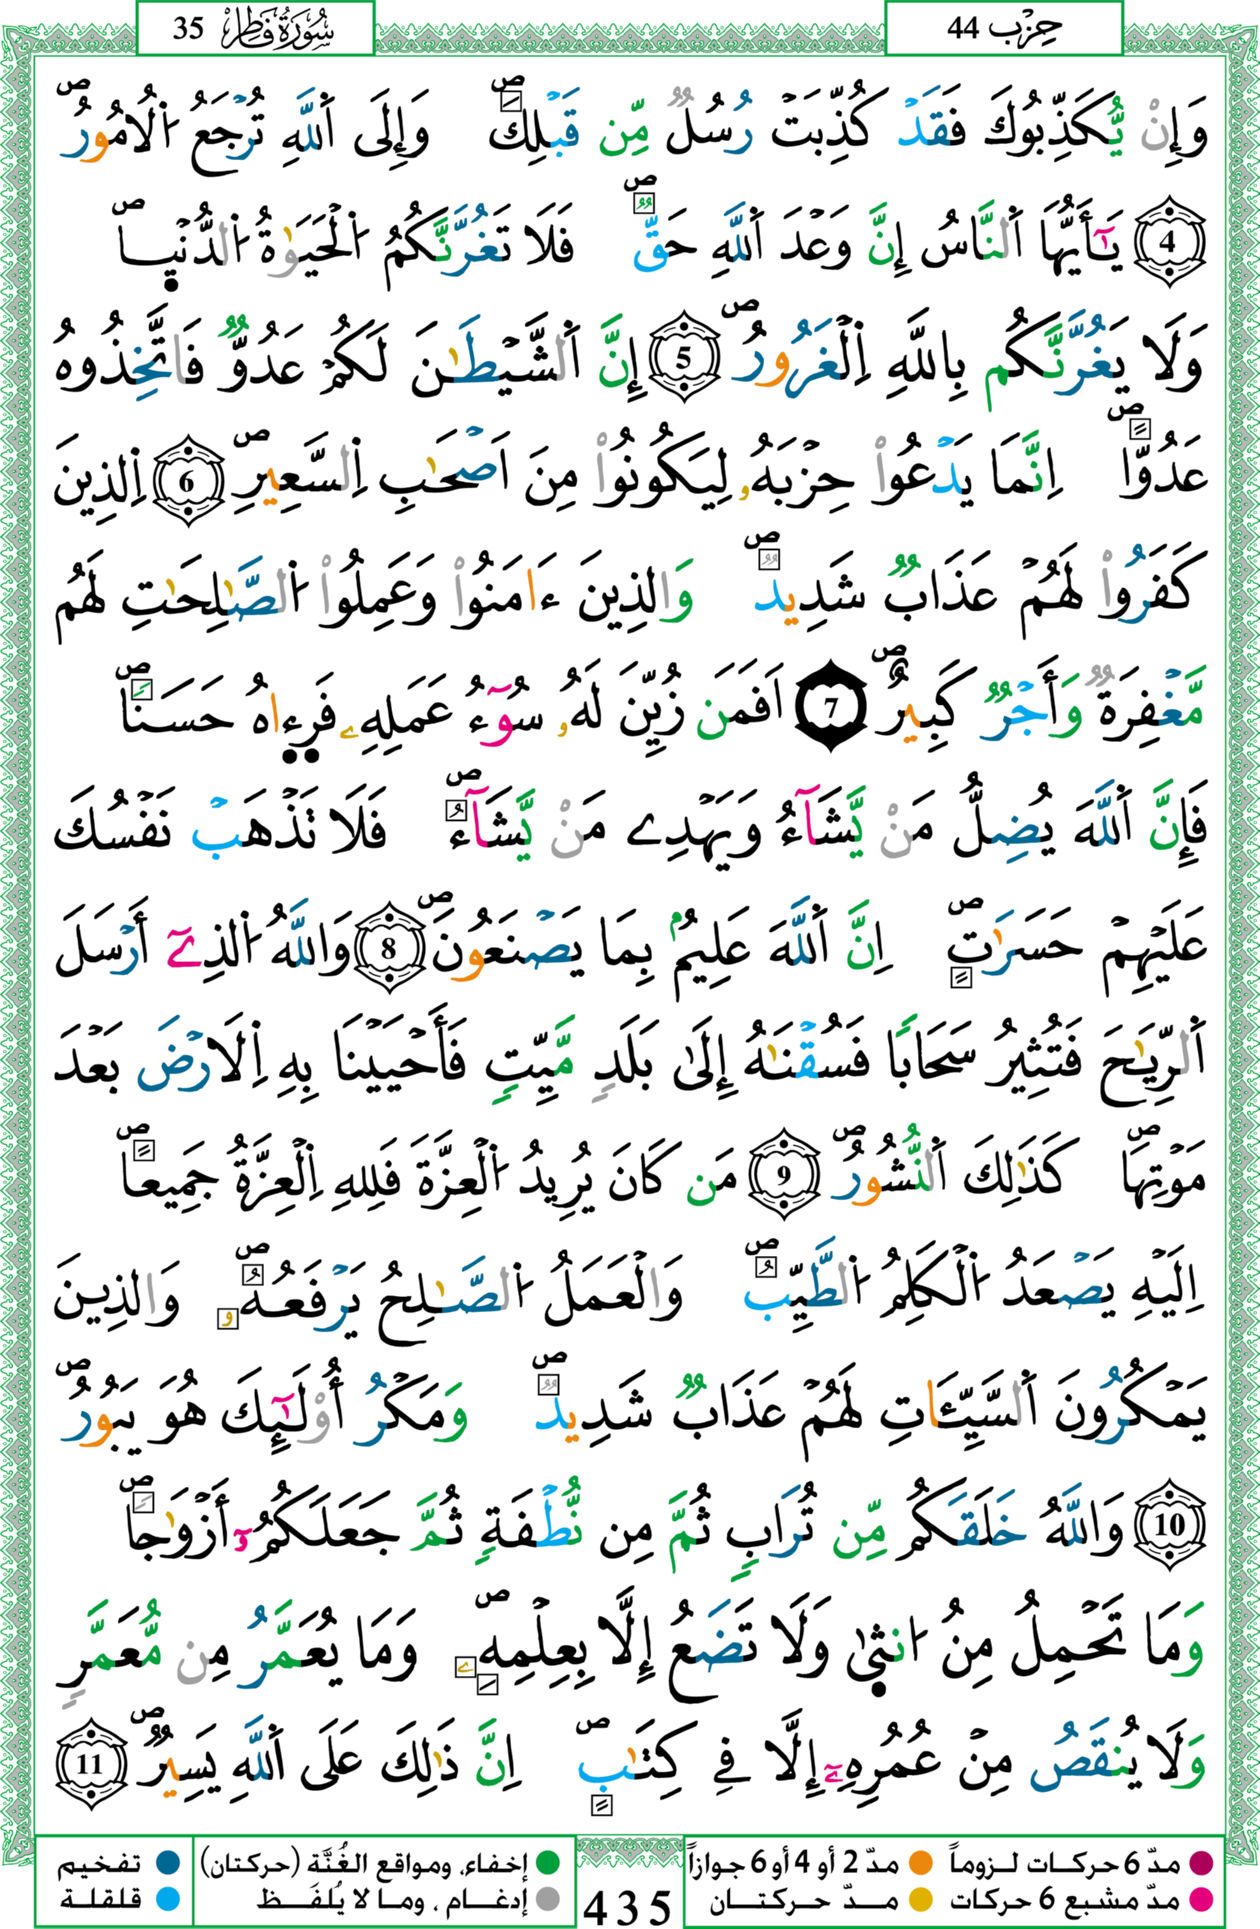 سُورَةُ فَاطِر 35
حِزْب 44
وَإِنْ يُّكَذِّبُوكَ فَقَدْ كُذِّبَتْ رُسُلٌ مِّن قَبْلِكَ وَإِلَى اَ۬للَّهِ تُرْجَعُ اُ۬لُامُورُ
4 يَٰٓأَيُّهَا اَ۬لنَّاسُ إِنَّ وَعْدَ اَ۬للَّهِ حَقٌّ فَلَا تَغُرَّنَّكُمُ اُ۬لْحَيَوٰةُ اُ۬لدُّنْي۪ا
وَلَا يَغُرَّنَّكُم بِاللَّهِ اِ۬لْغَرُورُ 5 إِنَّ اَ۬لشَّيْطَٰنَ لَكُمْ عَدُوٌّ فَاتَّخِذُوهُ
عَدُوًّا اِنَّمَا يَدْعُواْ حِزْبَهُۥ لِيَكُونُواْ مِنَ اَصْحَٰبِ اِ۬لسَّعِيرِ 6 اِ۬لذِينَ
كَفَرُواْ لَهُمْ عَذَابٌ شَدِيدٌ وَالذِينَ ءَامَنُواْ وَعَمِلُواْ اُ۬لصَّٰلِحَٰتِ لَهُم
مَّغْفِرَةٌ وَأَجْرٌ كَبِيرٌ 7 اَفَمَن زُيِّنَ لَهُۥ سُوٓءُ عَمَلِهِۦ فَر۪ء۪اهُ حَسَنًا
فَإِنَّ اَ۬للَّهَ يُضِلُّ مَنْ يَّشَآءُ وَيَهْدِے مَنْ يَّشَآءُ فَلَا تَذْهَبْ نَفْسُكَ
عَلَيْهِمْ حَسَرَٰتٍ اِنَّ اَ۬للَّهَ عَلِيمُۢ بِمَا يَصْنَعُونَ 8 وَاللَّهُ اُ۬لذِےٓ أَرْسَلَ
اَ۬لرِّيَٰحَ فَتُثِيرُ سَحَابًا فَسُقْنَٰهُ إِلَىٰ بَلَدٍ مَّيِّتٍ فَأَحْيَيْنَا بِهِ اِ۬لَارْضَ بَعْدَ
مَوْتِهَا كَذَٰلِكَ اَ۬لنُّشُورُ 9 مَن كَانَ يُرِيدُ اُ۬لْعِزَّةَ فَلِلهِ اِ۬لْعِزَّةُ جَمِيعًا
اِلَيْهِ يَصْعَدُ اُ۬لْكَلِمُ اُ۬لطَّيِّبُ وَالْعَمَلُ اُ۬لصَّٰلِحُ يَرْفَعُهُۥ وَالذِينَ
يَمْكُرُونَ اَ۬لسَّيِّـَٔاتِ لَهُمْ عَذَابٌ شَدِيدٌ وَمَكْرُ أُوْلَٰٓئِكَ هُوَ يَبُورُ
10 وَاللَّهُ خَلَقَكُم مِّن تُرَابٍ ثُمَّ مِن نُّطْفَةٍ ثُمَّ جَعَلَكُمُۥٓ أَزْوَٰجًا
وَمَا تَحْمِلُ مِنُ ا۟نث۪ىٰ وَلَا تَضَعُ إِلَّا بِعِلْمِهِۦ وَمَا يُعَمَّرُ مِن مُّعَمَّرٍ
وَلَا يُنقَصُ مِنْ عُمُرِهِۦٓ إِلَّا فِے كِتَٰبٍ اِنَّ ذَٰلِكَ عَلَى اَ۬للَّهِ يَسِيرٌ 11
مدّ 6 حركات لـزوماً مدّ 2 أو 4 أو 6 جوازاً إخفاء، ومواقع الغُنَّة (حركتان) تفخيم
مدّ مشبع 6 حركات مـدّ حـركتـان 435 إدغـام ، ومـا لا يُلفَـظ قلقلة